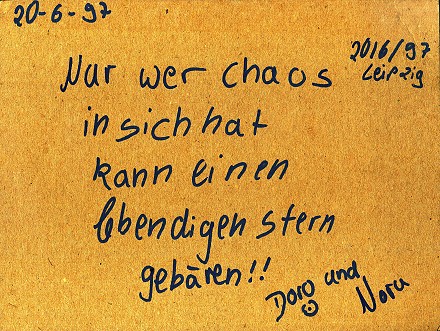 20-6-97
2016/97
Leipzig
Nur wer chaos
in sich hat
kann einen
lbendigen stern
gebären!!
Doro und
Nora